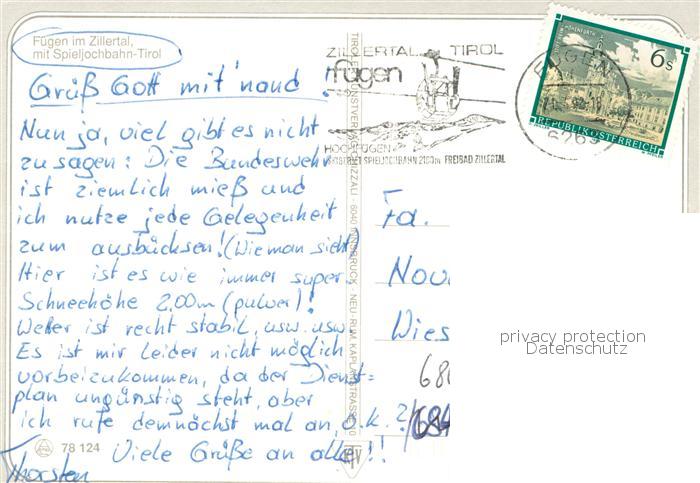 Fügen im Zillertal,
mit Spieljochbahn-Tirol
Grüß Gott mit'nand!
Nun ja, viel gibt es nicht
zu sagen: Die Bundeswehr
ist ziemlich mieß und
ich nutze jede Gelegenheit
zum ausbücksen! (Wie man sieht)
Hier ist es wie immer super.
Schneehöhe 2,00m (pulver)!
Wetter ist recht stabil, usw. usw.
Es ist mir leider nicht möglich
vorbeizukommen, da der Dienst=
plan ungünstig steht, aber
ich rufe demnächst mal an, o.k.?!
Viele Grüße an alle!!
Thorsten
78 124
TIROLER KUNSTVERLAG CHIZZALI · 6040 INNSBRUCK · NEU-RUM KAPLANSTRASSE 10
ZILLERTAL TIROL
fügen
HOCHFÜGEN
SPIELJOCHBAHN 2100m FREIBAD ZILLERTAL
FÜGEN
6263
6 S
REPUBLIK ÖSTERREICH
Fa.
Wies
684
privacy protection
Datenschutz